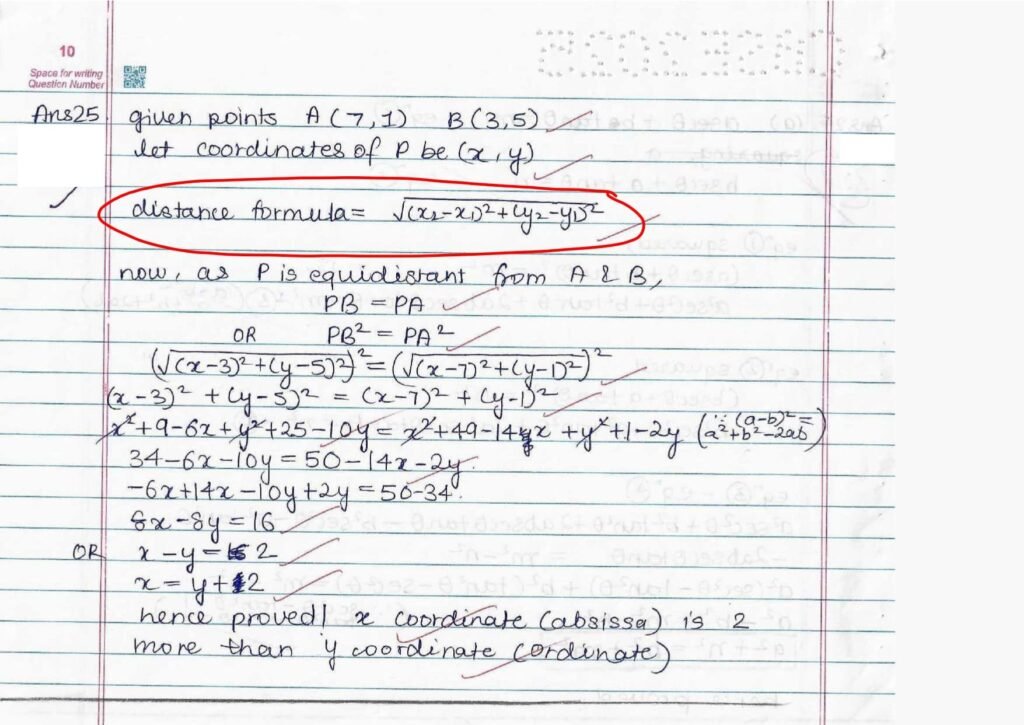 10
Space for writing
Question Number
Ans25 given points A (7,1) B (3,5)
let coordinates of P be (x, y)
distance formula = √(x₂-x₁)²+(y₂-y₁)²
now, as P is equidistant from A & B,
PB = PA
OR PB² = PA²
(√(x-3)²+(y-5)²)² = (√(x-7)²+(y-1)²)²
(x-3)² + (y-5)² = (x-7)² + (y-1)²
x²+9-6x+y²+25-10y = x²+49-14x+y²+1-2y (∵ (a-b)² = a²+b²-2ab)
34-6x-10y = 50-14x-2y
-6x+14x-10y+2y = 50-34
8x-8y = 16
OR x-y = 2
x = y+2
hence proved! x coordinate (absissa) is 2
more than y coordinate (ordinate)